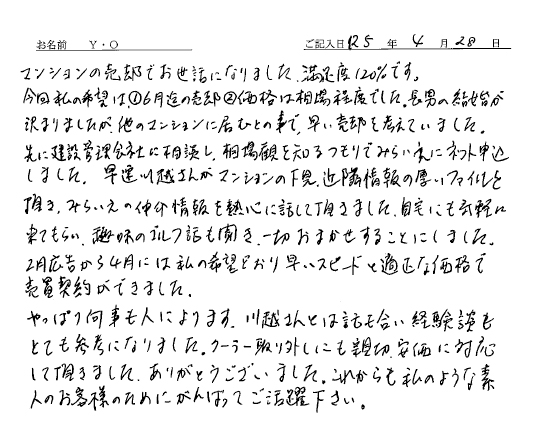 お名前 Y・O ご記入日 R5 年 4 月 28 日
マンションの売却でお世話になりました、満足度120%です。
今回私の希望は①6月迄の売却②価格は相場程度でした。長男の結婚が
決まりましたが、他のマンションに居むとの事で、早い売却を考えていました。
先に建設管理会社に相談し、相場観を知るつもりでみらいえにネット申込
しました。早速川越さんがマンションの下見、近隣情報の厚いファイルを
頂き、みらいえの仲介情報を熱心に話して頂きました、自宅にも気軽に
来てもらい、趣味のゴルフ話も聞き、一切おまかせすることにしました。
2月広告から4月には私の希望どおり早いスピードと適正な価格で
売買契約ができました。
やっぱり何事も人によります、川越さんとは話も合い経験談も
とても参考になりました。クーラー取り外しにも親切、安価に対応
して頂きました、ありがとうございました。これからも私のような素
人のお客様のためにがんばってご活躍下さい。